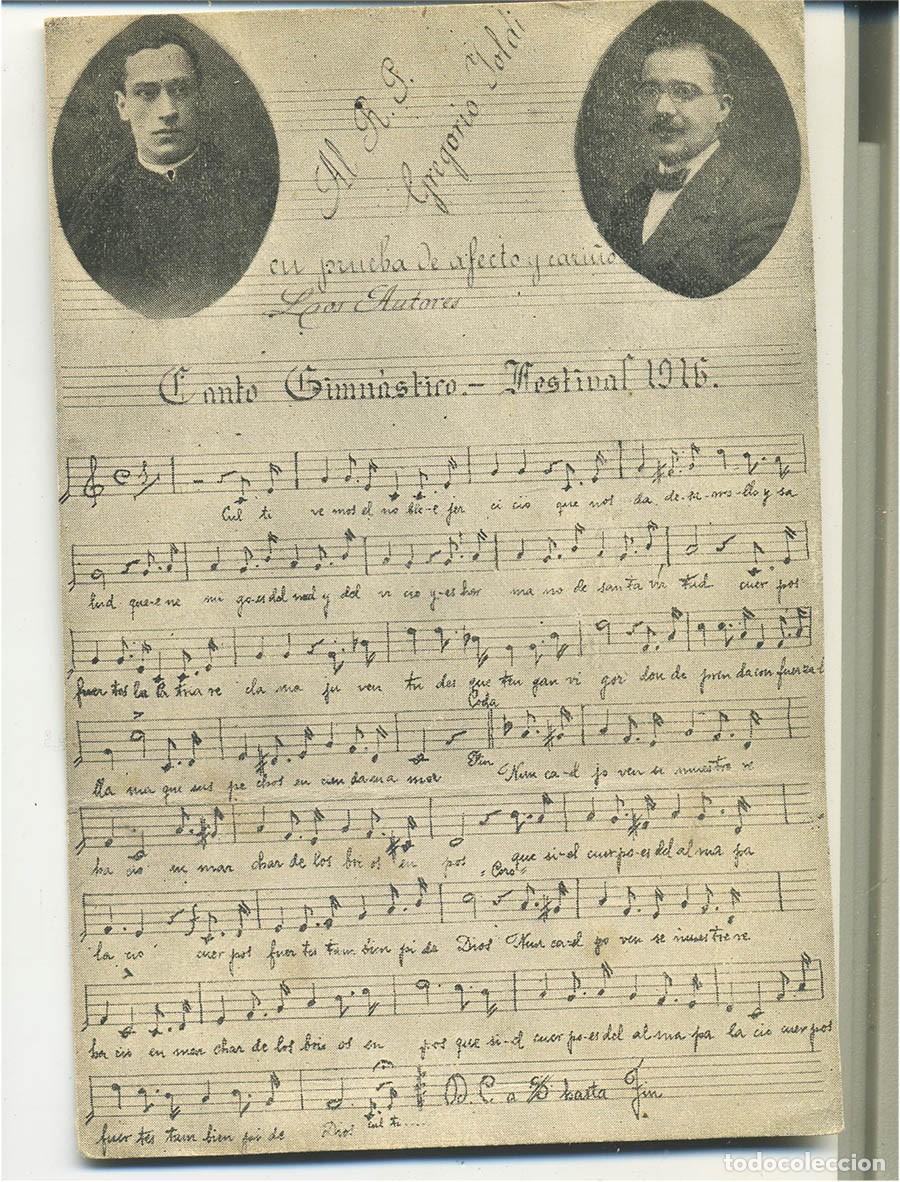 Al R. P.
Gregorio Yoldi
en prueba de afecto y cariño
Los Autores
Canto Gimnástico.- Festival 1916.
Cul ti ve mos el no ble-e jer ci cio que nos da de-sa-rro-llo y sa
lud que-e ne mi go-es del med y del vi cio y-es her ma no de san ta vir tud cuer pos
fuer tes la Pa tria re cla ma ju ven tu des que ten gan vi gor don de pren da con fuerza-l
Coda
lla ma que sus pe chos en cien da en a mor
Fin
Nun ca-el jo ven se muestre re
ha cio en mar char de los bri os en pos que si-el cuer po-es del al ma pa
"Coro"
la cio cuer pos fuer tes tam bien pi de Dios Nun ca-el jo ven se muestre re
ha cio en mar char de los bri os en pos que si-el cuer po-es del al ma pa la cio cuer pos
D. C. a hasta Fin
fuer tes tam bien pi de Dios Cul ti....
todocoleccion